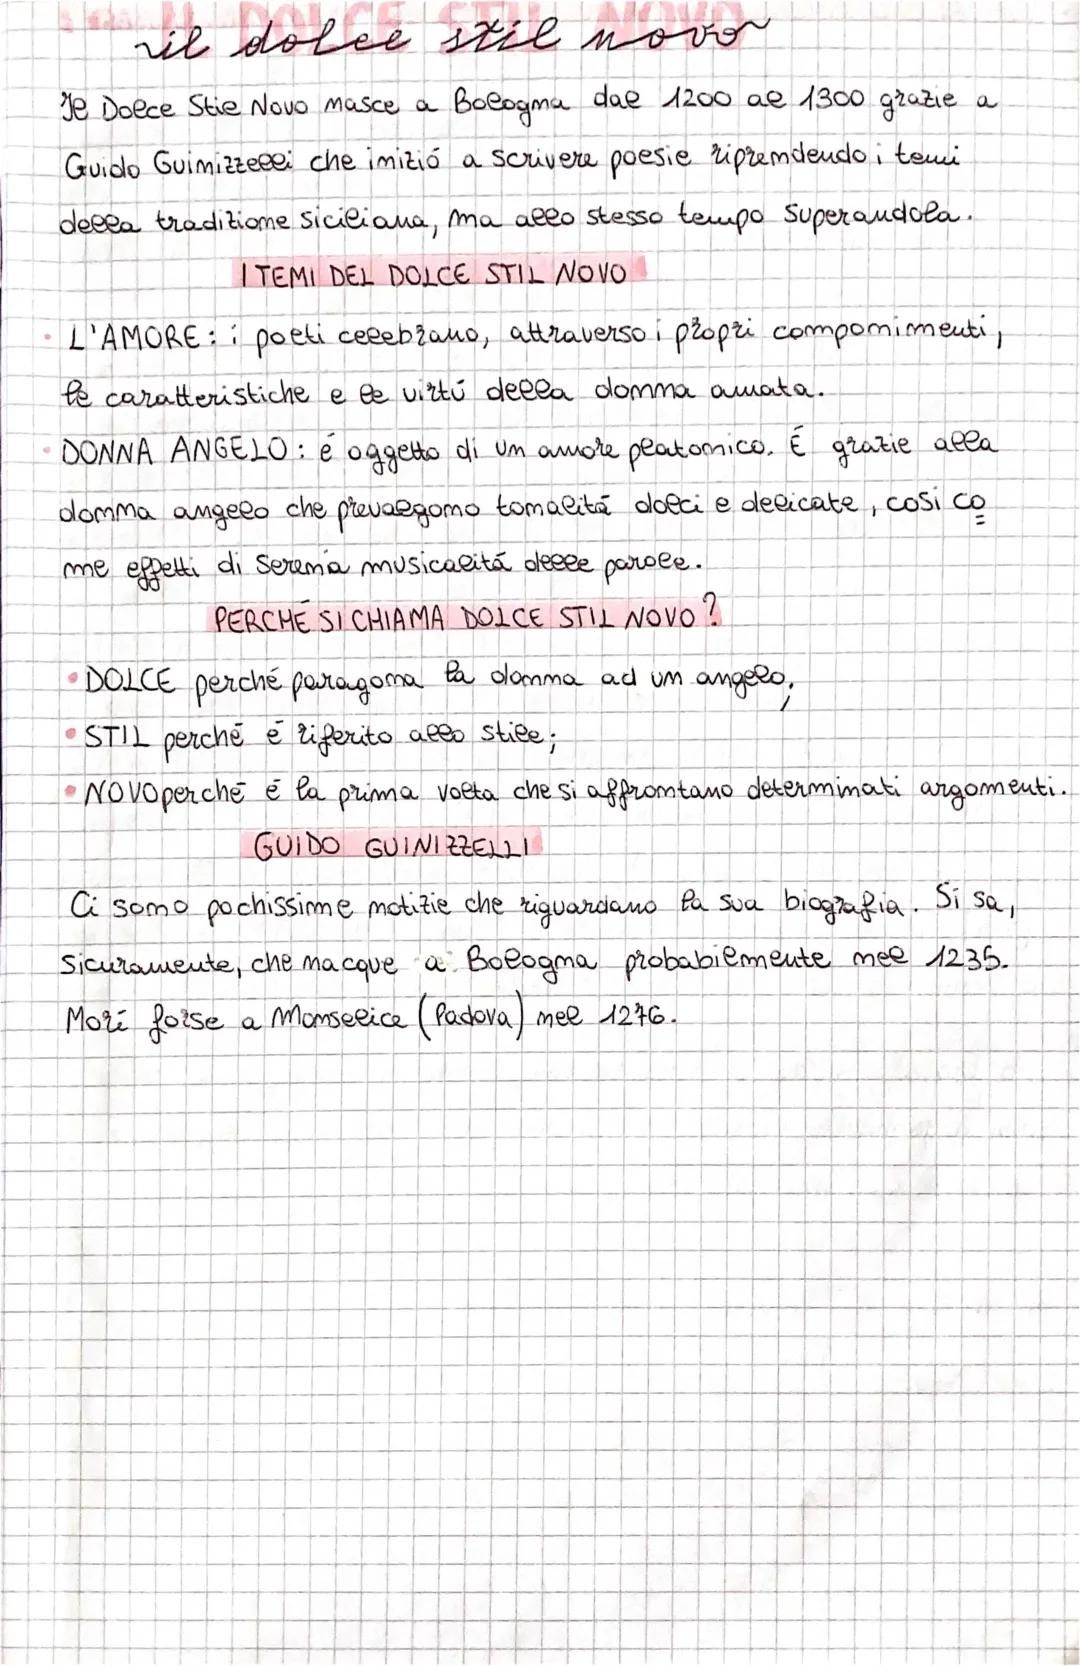 il dolce stil novo
IL DOLCE STIL NOVO
Il Dolce Stil Novo nasce a Bologna dal 1200 al 1300 grazie a
Guido Guinizzelli che iniziò a scrivere poesie riprendendo i temi
della tradizione siciliana, ma allo stesso tempo superandola.
I TEMI DEL DOLCE STIL NOVO
• L'AMORE: i poeti celebrano, attraverso i propri componimenti,
le caratteristiche e le virtú della donna amata.
• DONNA ANGELO: é oggetto di un amore platonico. É grazie alla
donna angelo che prevalgono tonalitá dolci e delicate, cosí co
me effetti di serena musicalitá delle parole.
PERCHÉ SI CHIAMA DOLCE STIL NOVO?
• DOLCE perché paragona la donna ad un angelo;
• STIL perché é riferito allo stile;
• NOVO perché é la prima volta che si affrontano determinati argomenti.
GUIDO GUINIZZELLI
Ci sono pochissime notizie che riguardano la sua biografia. Si sa,
sicuramente, che nacque a Bologna probabilmente nel 1235.
Morí forse a Monselice (Padova) nel 1276.